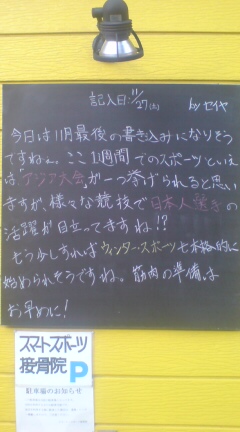 記入日:11/27(土) by セイヤ
今日は11月最後の書き込みになりそう
ですねぇ。ここ1週間でのスポーツといえ
ば「アジア大会」が一つ挙げられると思い
ますが、様々な競技で日本人選手の
活躍が目立ってますね!?
もう少しすればウィンタースポーツも本格的に
始められそうですね。筋肉の準備は
お早めに!
スマートスポーツ
接骨院 P
駐車場のお知らせ